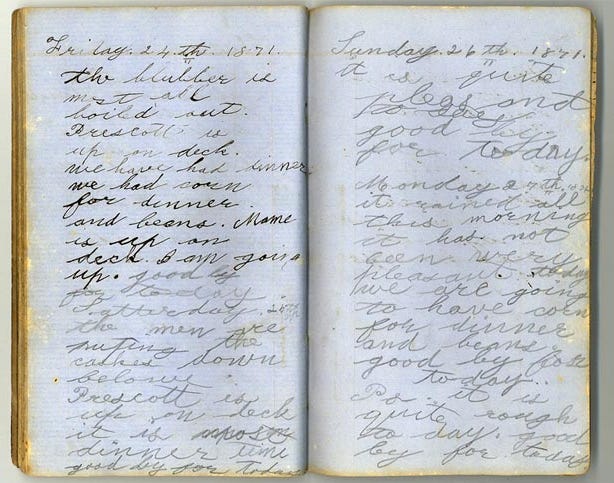 Friday. 24.th. 1871.
the blubber is
most all
boild out.
Prescott is
up on deck.
we have had dinner
we had corn
for dinner.
and beans. Mame
is up on
deck. I am goin
up. good by
for to day
Satterday. 25th
the men are
puting the
caskes down
below.
Prescott is
up on deck
it is most
dinner time
good by for today
Sunday. 26th. 1871.
It is quite
pleas and
to day
good by
for to day.
Monday 27th.
it rained all
this morning
it has not
been very
pleasant. today
we are going
to have corn
for dinner
and beans
good by for
to day.
Ps it is
quite rough
to day. good
by for today